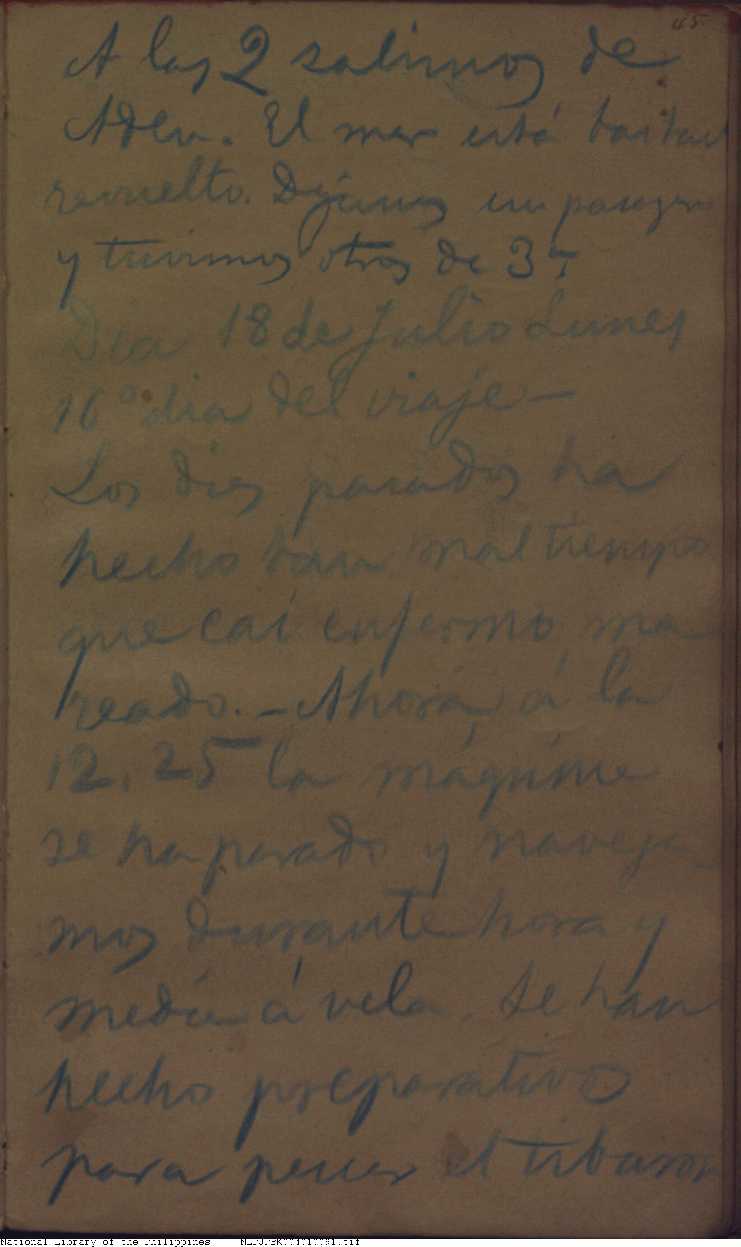 45
A las 2 salimos de
Aden. El mar está bastant
revuelto. Dejamos un pasagero
y tuvimos otros de 3ª
Dia 18 de Julio Lunes
16º dia del viaje—
Los dies pasados ha
hecho tan mal tiempo
que caí enfermo, ma
reado.—Ahora, á la
12.25 la máquina
se ha parado y navega
mos durante hora y
media á vela. Se han
hecho preparativos
para pescar el tiburon
National Library of the Philippines